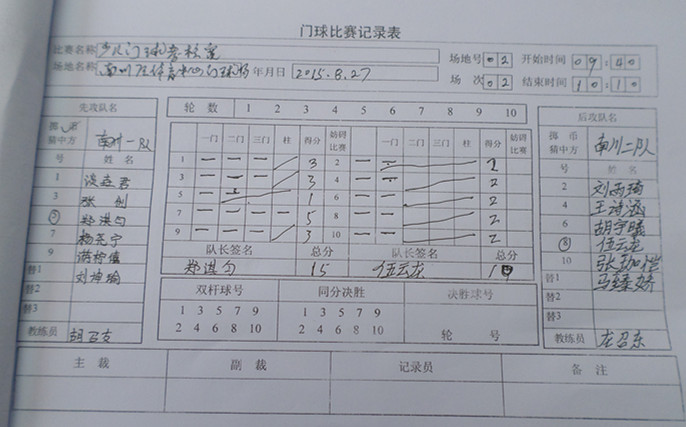 门球比赛记录表
比赛名称 少儿门球
场地号 0 2 开始时间 0 9 : 4 0
场地名称 南川 体育 门球场 年月日 2015.8.27
场 次 0 2 结束时间 1 0 : 1 0
先攻队名
轮 数 1 2 3 4 5 6 7 8 9 10
后攻队名
掷 币 猜中方 南川一队
一门 二门 三门 柱 得分 始碍比赛 一门 二门 三门 柱 得分 始碍比赛
掷 币 猜中方 南川二队
号 姓 名
1 一 一 一 3 2 一 一 2
号 姓 名
1
3 一 一 一 3 4 2
2 刘雨琦
3 张 创
5 1 6 2
4 王诗涵
5 郑淇匀
7 一 一 一 一 5 8 2
6 胡宇曦
7 杨芫宁
9 3 10 2
8 伍云龙
9
队长签名 总分 队长签名 总分
10
替1 刘坤瑜
郑淇匀 15 伍云龙 10
替1
替2
双杆球号 同分决胜 决胜球号
替2
替3
1 3 5 7 9 1 3 5 7 9
替3
2 4 6 8 10 2 4 6 8 10 轮 号
教练员 胡
教练员 龙召东
主 裁 副 裁 记录员 备 注